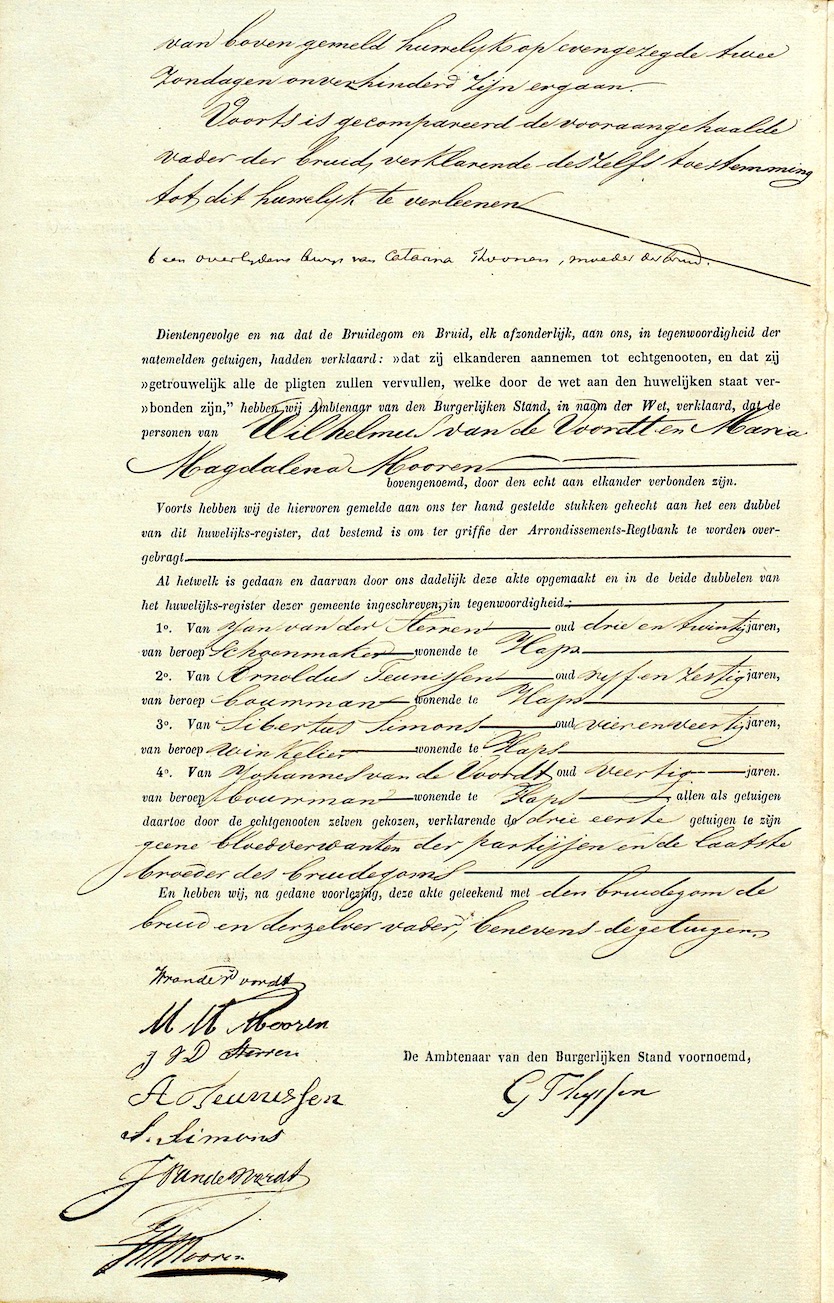 van boven gemeld huwelijk op evengezegde twee
Zondagen onverhinderd zijn ergaan.
Voorts is gecompareerd de vooraangehaalde
vader der bruid, verklarende deszelfs toestemming
tot dit huwelijk te verleenen
6 een overlijdens bewijs van Catarina Thoonen, moeder der bruid.
Dientengevolge en na dat de Bruidegom en Bruid, elk afzonderlijk, aan ons, in tegenwoordigheid der
natemelden getuigen, hadden verklaard: »dat zij elkanderen aannemen tot echtgenooten, en dat zij
»getrouwelijk alle de pligten zullen vervullen, welke door de wet aan den huwelijken staat ver-
»bonden zijn,” hebben wij Ambtenaar van den Burgerlijken Stand, in naam der Wet, verklaard, dat de
personen van Wilhelmus van de Voordt en Maria
Magdalena Mooren
bovengenoemd, door den echt aan elkander verbonden zijn.
Voorts hebben wij de hiervoren gemelde aan ons ter hand gestelde stukken gehecht aan het een dubbel
van dit huwelijks-register, dat bestemd is om ter griffie der Arrondissements-Regtbank te worden over-
gebragt.
Al hetwelk is gedaan en daarvan door ons dadelijk deze akte opgemaakt en in de beide dubbelen van
het huwelijks-register dezer gemeente ingeschreven, in tegenwoordigheid:
1o. Van Jan van der Sterren oud drie en twintig jaren,
van beroep Schoenmaker wonende te Haps
2o. Van Arnoldus Teunissen oud vijf en zestig jaren,
van beroep bouwman wonende te Haps
3o. Van Sibertus Simons oud vier en veertig jaren,
van beroep winkelier wonende te Haps
4o. Van Johannes van de Voordt oud veertig jaren.
van beroep bouwman wonende te Haps allen als getuigen
daartoe door de echtgenooten zelven gekozen, verklarende de drie eerste getuigen te zijn
geene bloedverwanten der partijen en de laatste
broeder des bruidegoms
En hebben wij, na gedane voorlezing, deze akte geteekend met den bruidegom de
bruid en derzelver vader, benevens de getuigen.
W van de voordt
M M Mooren
J V D Sterren
De Ambtenaar van den Burgerlijken Stand voornoemd,
A Teunissen
G Thijssen
S. Simons
J Vande Voordt
Mooren